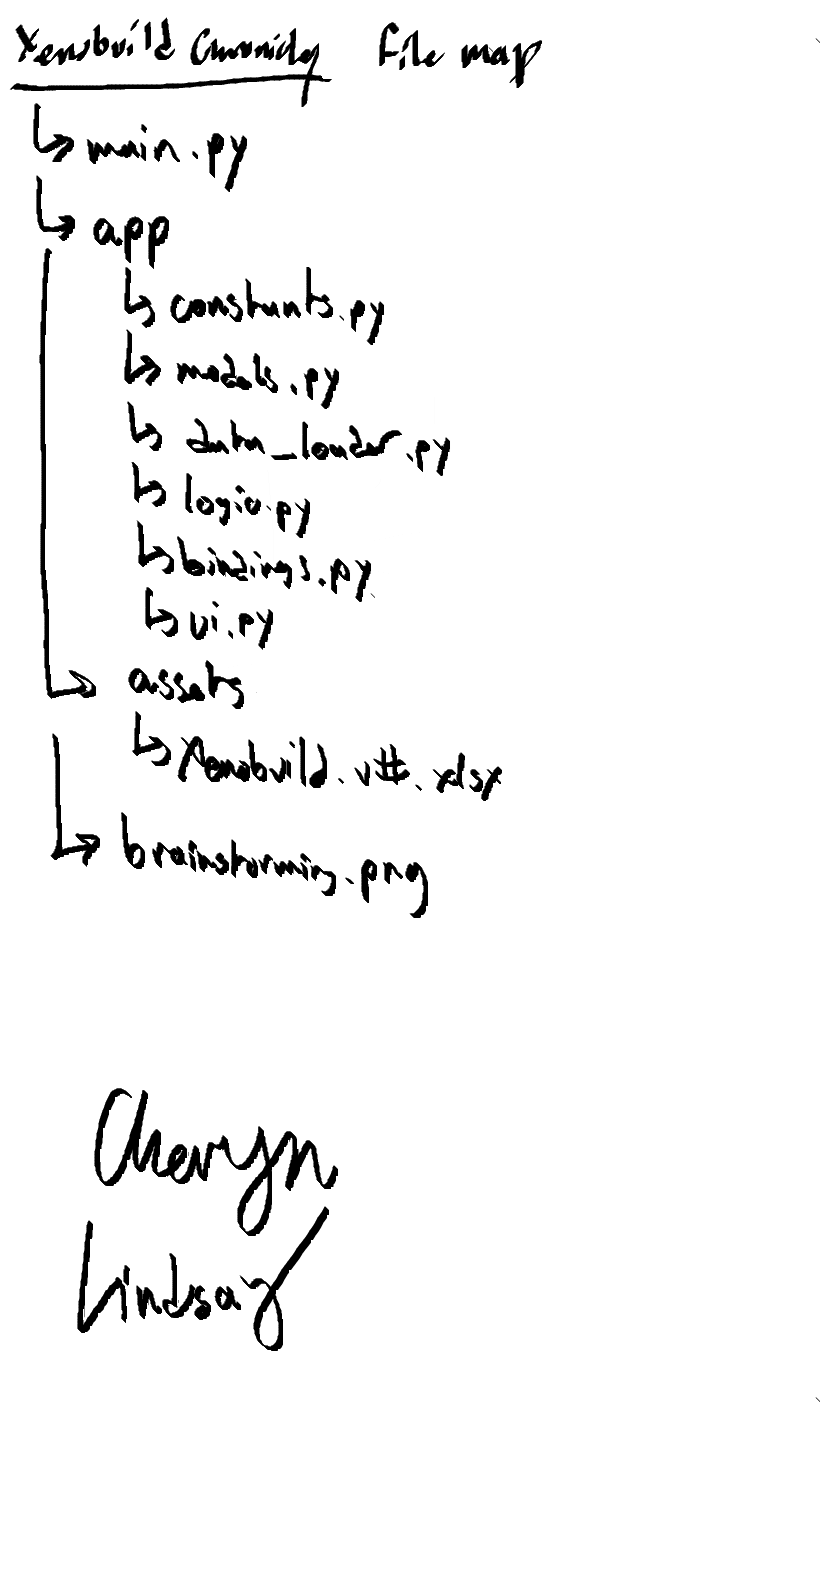 Xenobuild Chronicles File map
↳ main.py
↳ app
↳ constants.py
↳ models.py
↳ data_loader.py
↳ logic.py
↳ bindings.py
↳ ui.py
↳ assets
↳ Xenobuild.v#.xlsx
↳ brainstorming.png
Cheryn
Lindsay